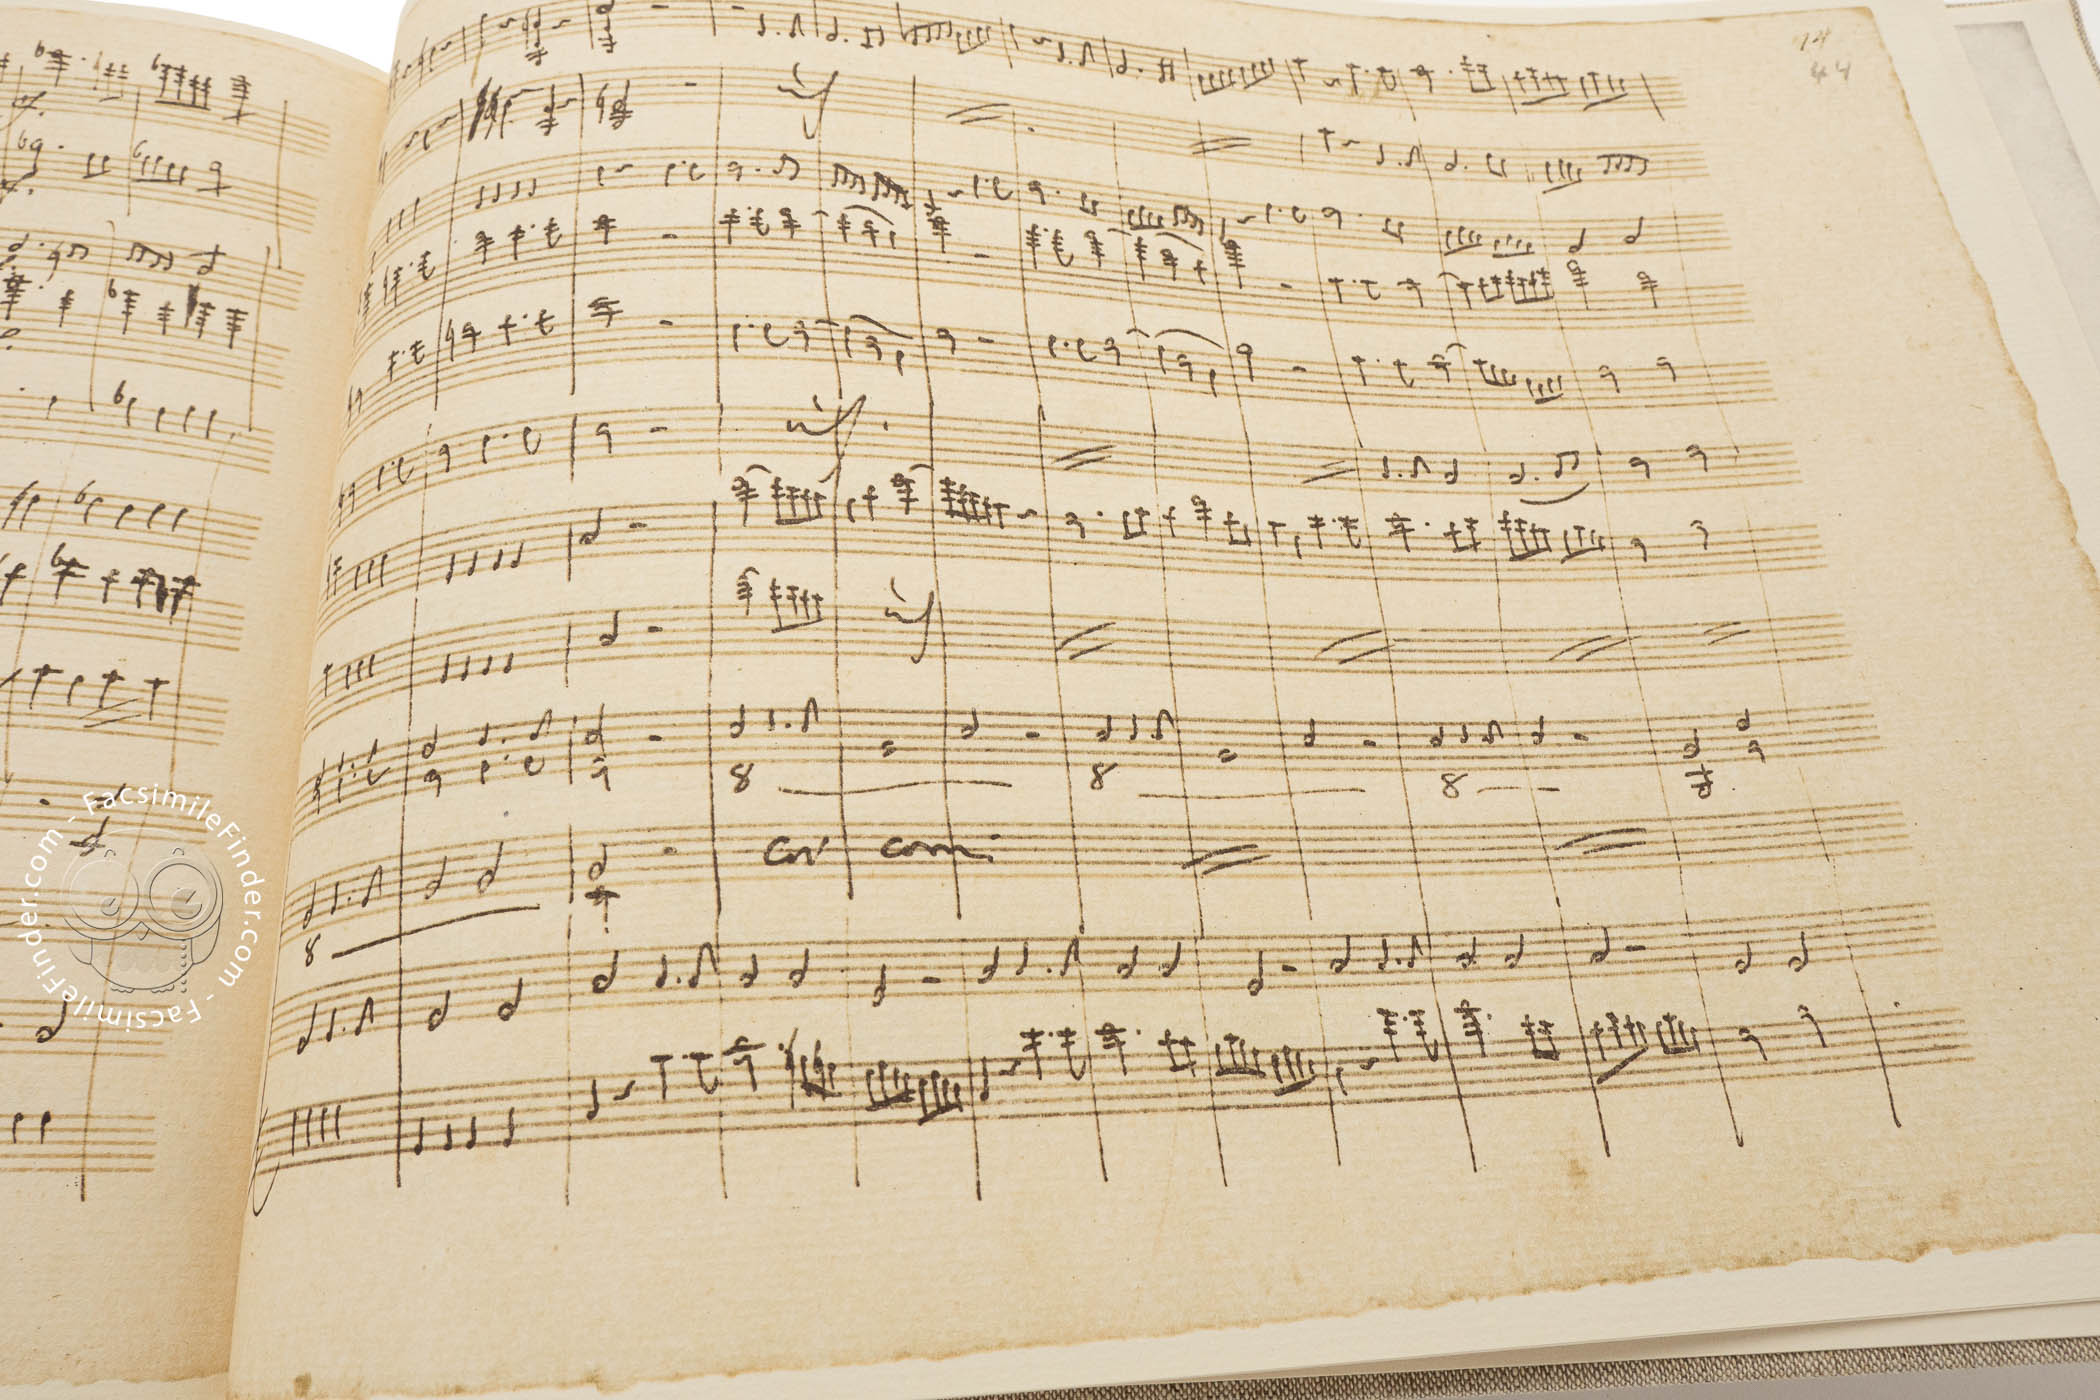 14
44
8
8
8
Cori corni
8
FacsimileFinder.com - FacsimileFinder.com -